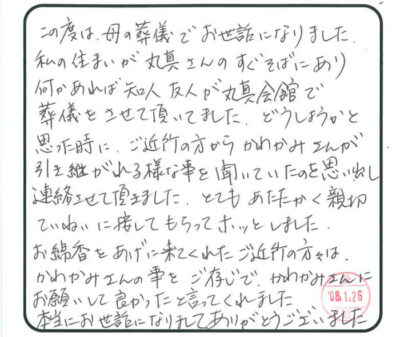 この度は、母の葬儀でお世話になりました。
私の住まいが丸真さんのすぐそばにあり
何かあれば知人友人が丸真会館で
葬儀をさせて頂いてました。どうしようかと
思った時に、ご近所の方からかわかみさんが
引き継がれる様な事を聞いていたのを思い出し
連絡させて頂きました。とてもあたたかく親切
ていねいに接してもらってホッとしました。
お線香をあげに来てくれたご近所の方々は、
かわかみさんの事をご存じで、かわかみさんに
お願いして良かったと言ってくれました
本当にお世話になりましてありがとうございました
08.1.26